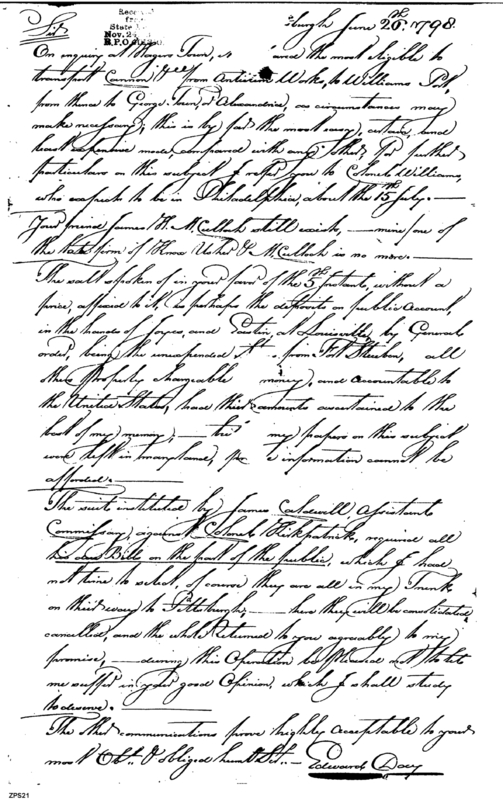 Sir
burgh June 20th. 1798.
On enquiry at Hagers Town, and the most eligible to
transport Cannon from Antietam Works, to Williams Port,
from thence to George Town, or Alexandria, as circumstances may
make necessary; this is by far the most easy, certain, and
least expensive mode, compared with any other; for further
particulars on this subject I refer you to Colonel Williams,
who expects to be in Philadelphia, about the 15th July. —
Your friend James H. McCulloh still exists, — mine/one of
the late firm of Usher & McCulloh is no more. —
The salt spoken of in your favor of the 5th Instant, without a
price, affixed to it, is perhaps the deposits on public Account,
in the hands of and at Louisville, by General
order, being the unexpended from Fort Steuben, all
other Property chargeable money, and accountable to
the United States, had their amounts ascertained to the
best of my memory; — my papers on this subject
were left in Maryland, information cannot be
afforded. —
The suit instituted by James Caldwell Assistant
Commissary, against Colonel Kirkpatrick, required all
his Bills on the part of the public, which I had
not time to select, of course they are all in my Trunk
on their way to Pittsburgh; — here they will be
cancelled, and the whole Returned to you agreeably to my
promise, — during this Operation be pleased not to let
me suffer in your good Opinion, which I shall study
to deserve. —
The communications prove highly acceptable to your
most Obt. & obliged Servt. — Edward Day
State
Nov. 24
ZPS21